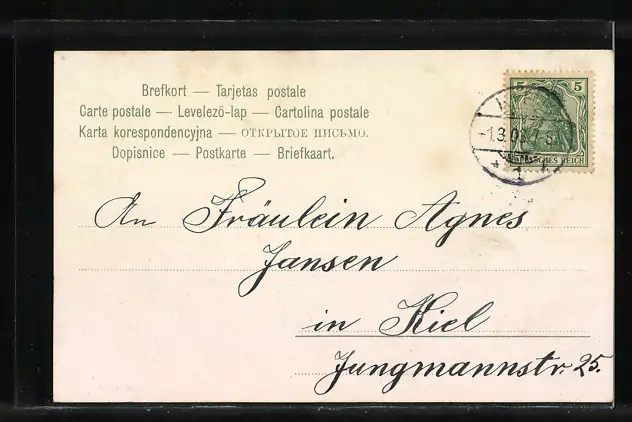 Brefkort — Tarjetas postale
Carte postale — Levelezö-lap — Cartolina postale
Karta korespondencyjna — ОТКРЫТОЕ ПИСЬМО.
Dopisnice — Postkarte — Briefkaart.
5 5
REICH
An Fräulein Agnes
Jansen
in Kiel
Jungmannstr. 25.